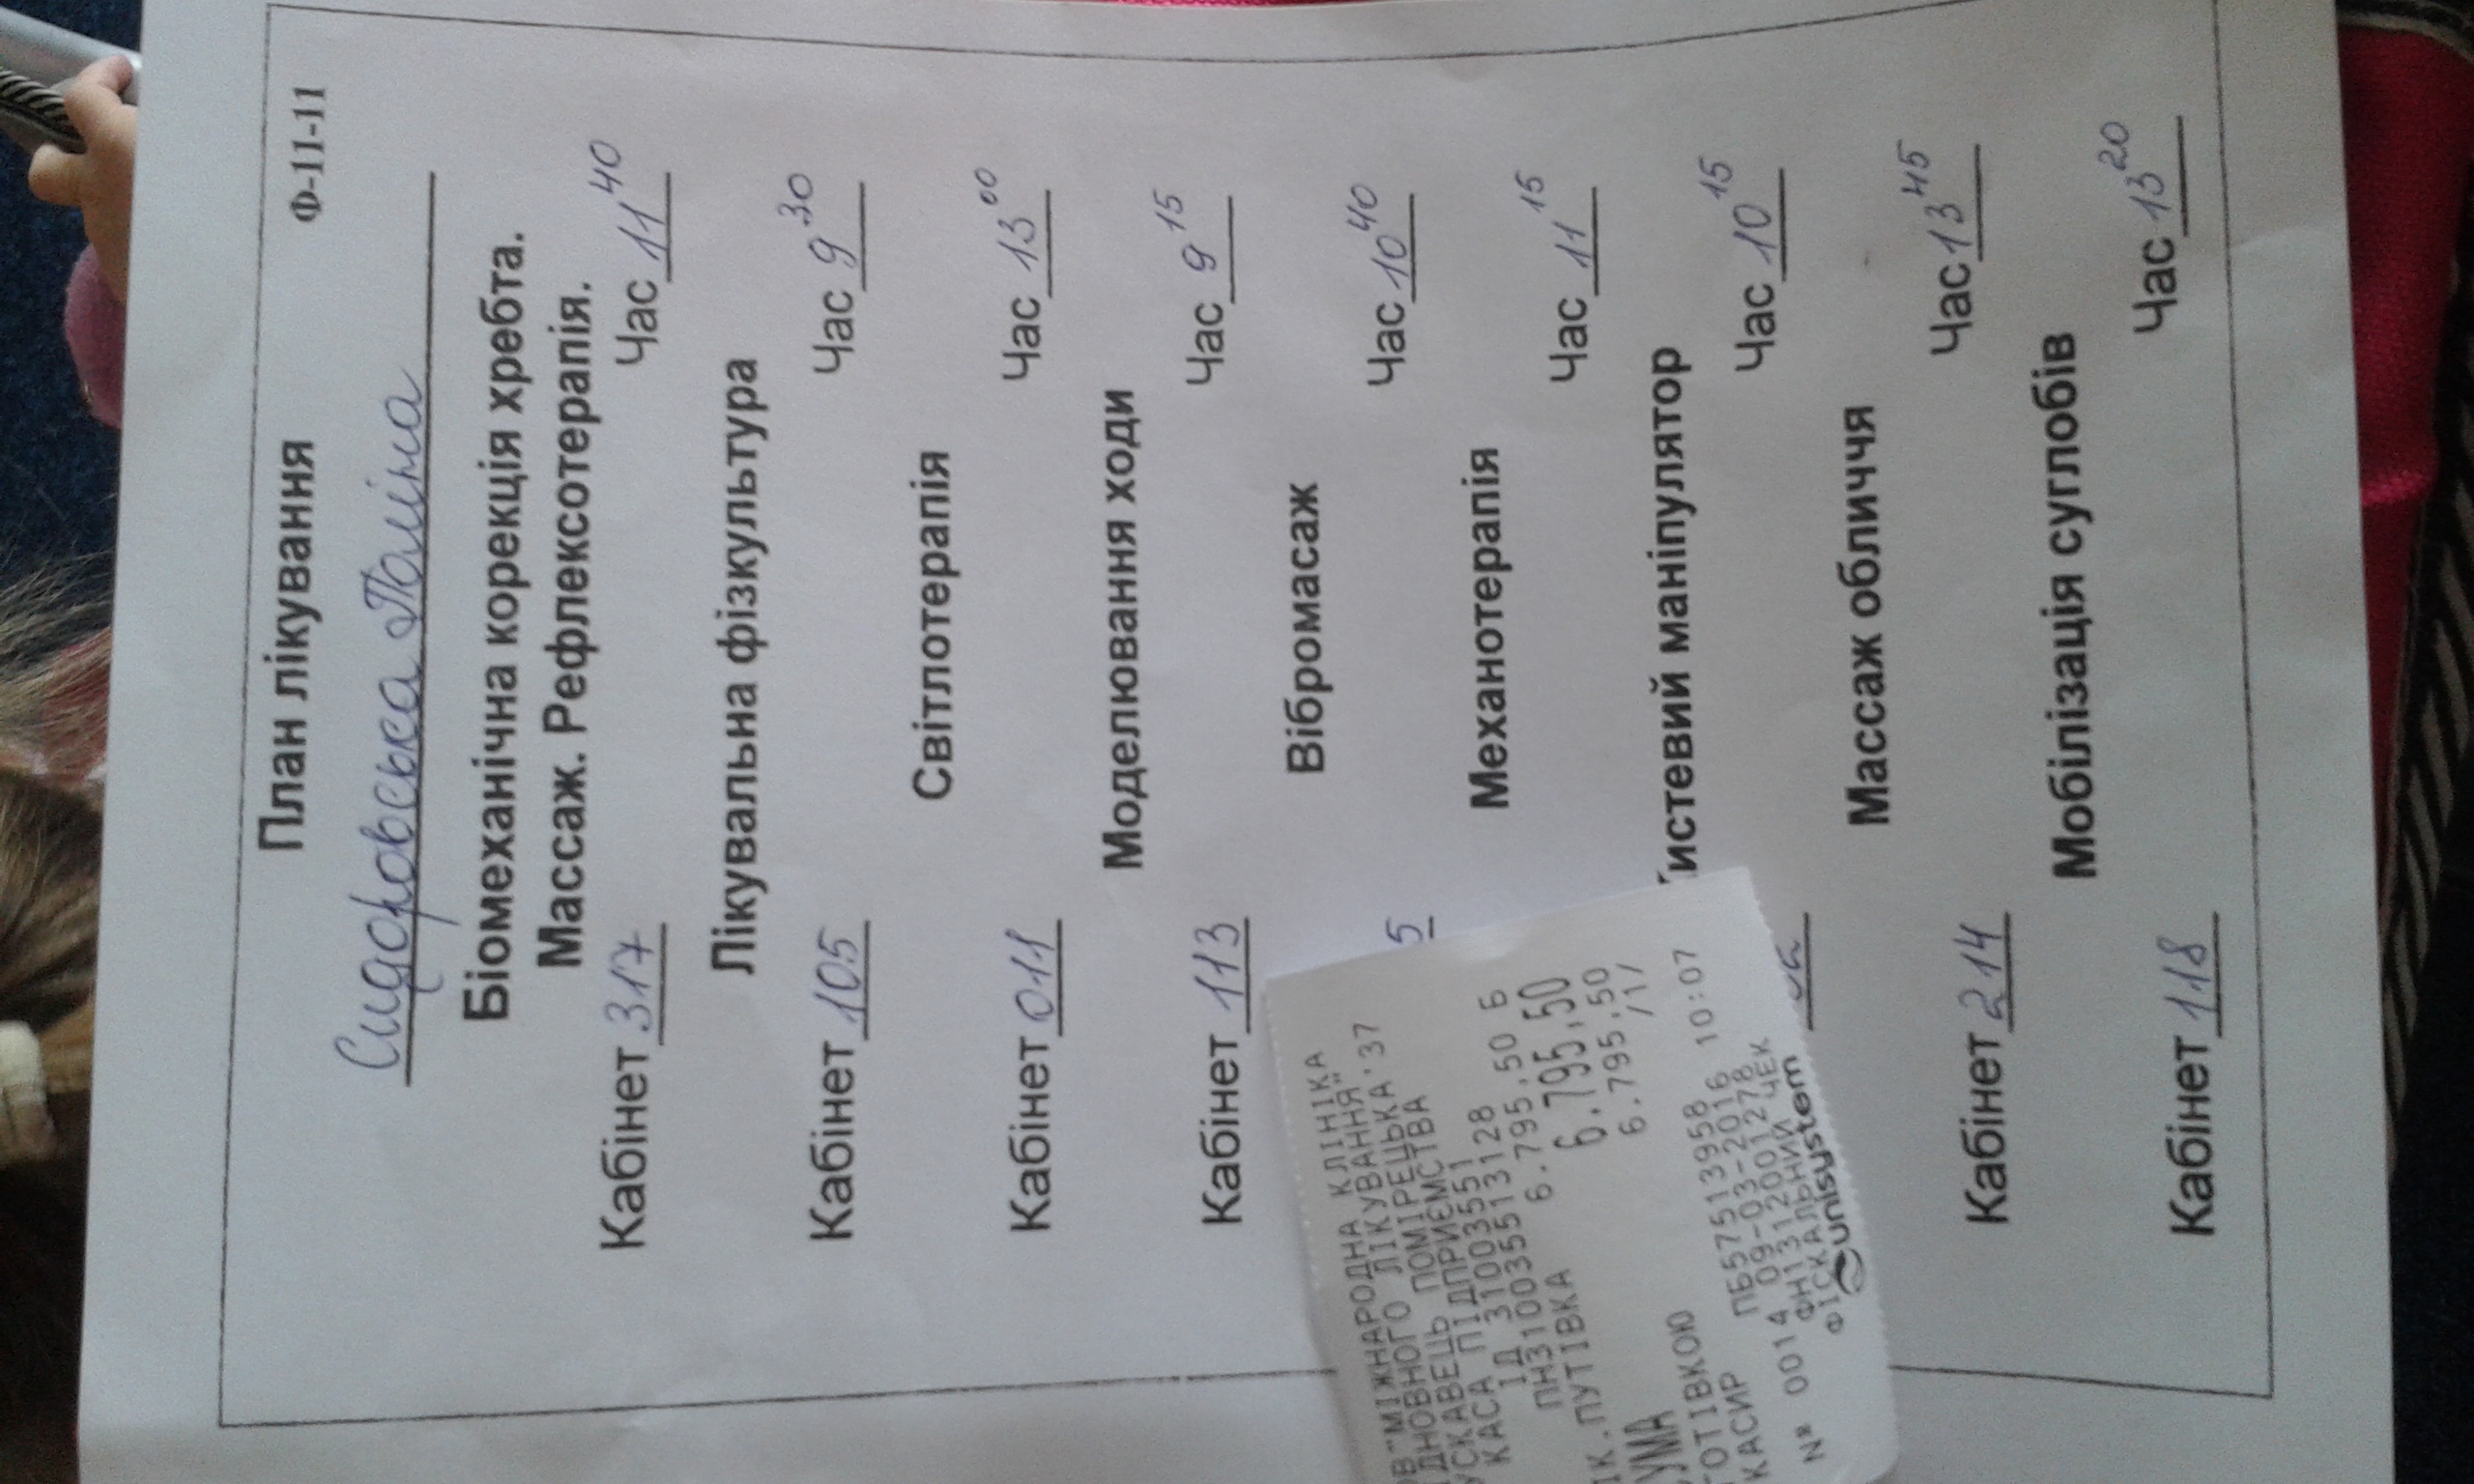 План лікування Ф-11-11
Сидоровська Поліна
Біомеханічна корекція хребта.
Массаж. Рефлексотерапія.
Кабінет 317 Час 11 40
Лікувальна фізкультура
Кабінет 105 Час 9 30
Світлотерапія
Кабінет 011 Час 13 00
Моделювання ходи
Кабінет 113 Час 9 15
Вібромасаж
5 Час 10 40
Механотерапія
Час 11 15
истевий маніпулятор
Час 10 15
Массаж обличчя
Кабінет 214 Час 13 45
Мобілізація суглобів
Кабінет 118 Час 13 20
ОВ"МІЖНАРОДНА КЛІНІКА
ІДНОВНОГО ЛІКУВАННЯ"
УСКАВЕЦЬ ПОМІРЕЦЬКА.37
КАСА ПІДПРИЄМСТВА
ІД 31003551
ПН310035513128
ІК.ПУТІВКА 6.795,50 Б
УМА 6.795,50
ОТІВКОЮ 6.795,50
КАСИР /1/
ПБ5751З958
№ 0014 09-03-2016 10:07
ФН1312001278
ФІСКАЛЬНИЙ ЧЕК
unisystem